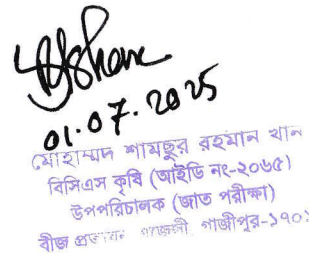 01.07.2025
মোহাম্মদ শামছুর রহমান খান
বিসিএস কৃষি (আইডি নং-২০৬৫)
উপপরিচালক (জাত পরীক্ষা)
বীজ প্রত্যয়ন এজেন্সী গাজীপুর-১৭০১